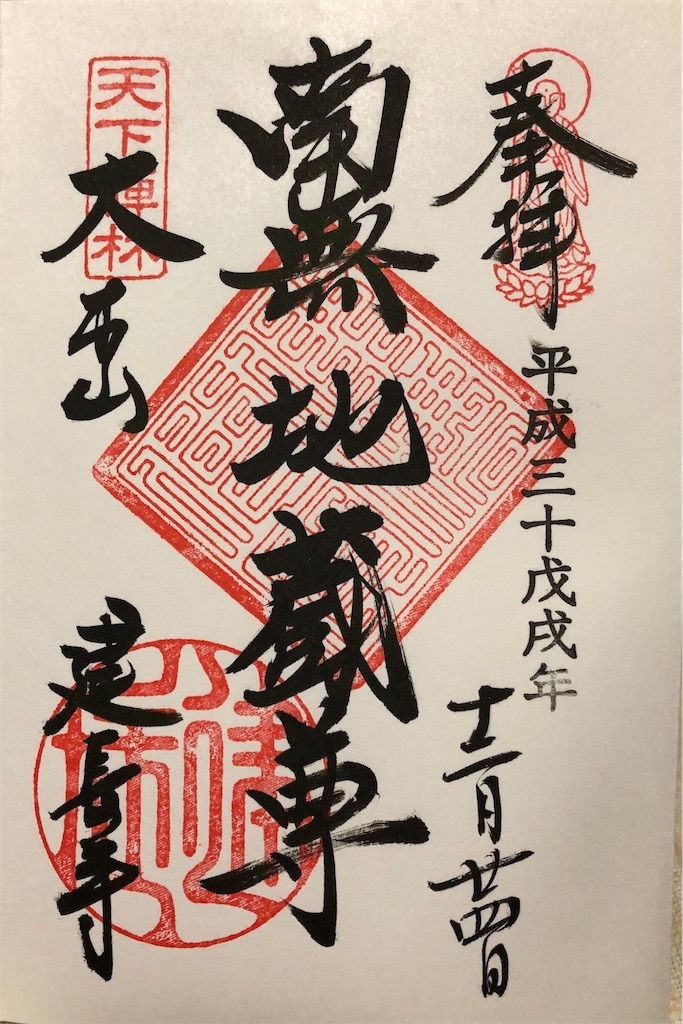 奉拝
平成三十戊戌年
十二月廿四日
南無地蔵尊
天下禅林
大本山
建長寺